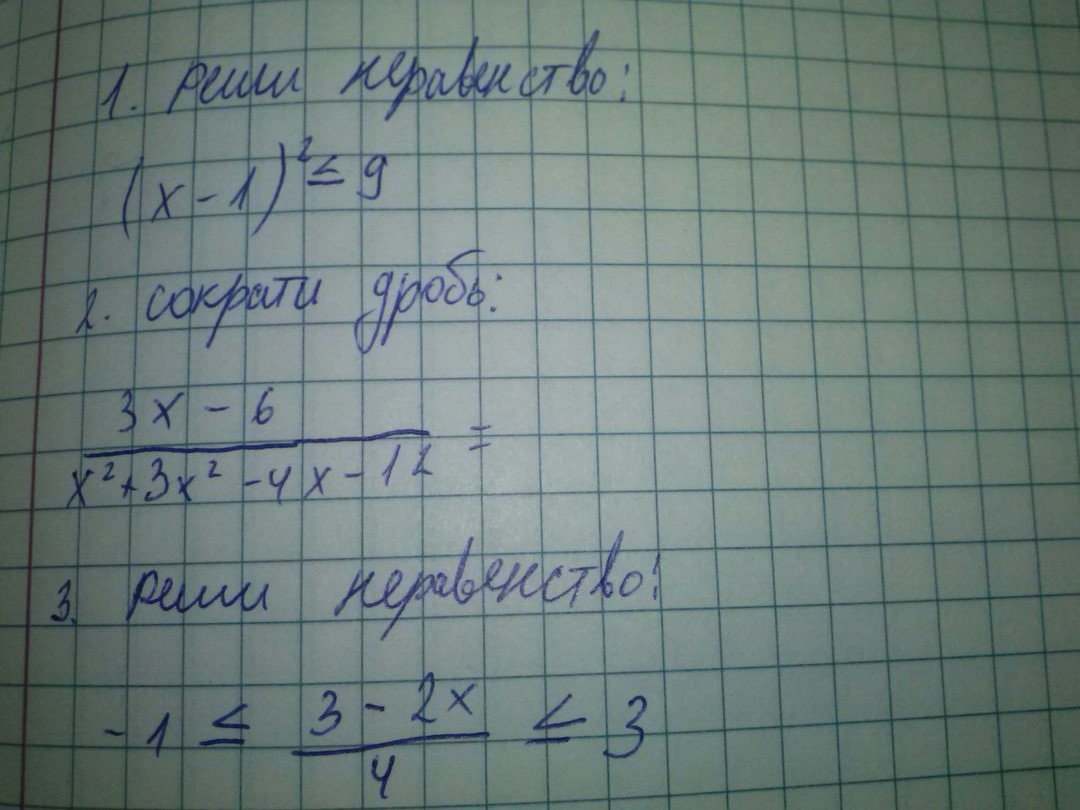 1. реши неравенство:
(x - 1)² ≤ 9
2. сократи дробь:
3x - 6
x² + 3x² - 4x - 12 =
3. реши неравенство:
-1 ≤ 3 - 2x ≤ 3
4